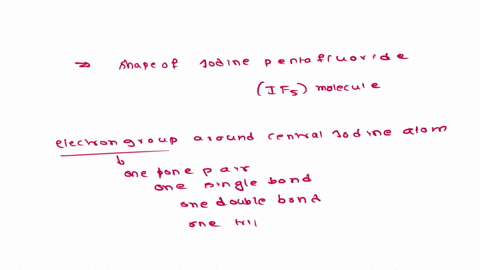 ⇒ shape of Iodine pentafluoride
(IF5) molecule
electron group around central Iodine atom
one pone pair
one single bond
one double bond
one tri